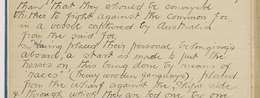 than that they should be conveyed
thither to fight against the common foe
in a vessel captured by Australia
from the said foe.
Having placed their personal belongings
aboard, a start was made to put the
horses on this being done by means of
"races" (heavy wooden gangways) placed
from the wharf against the ships side
& through which they are led one by one